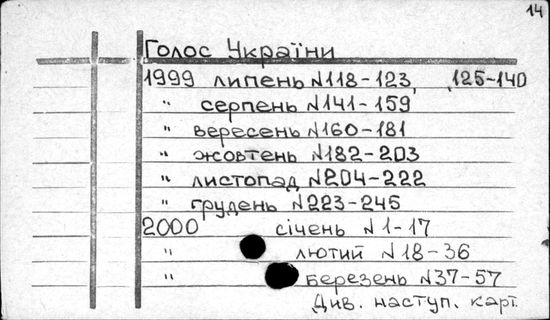 14
Голос України
1999 липень N118-123, 125-140
" серпень N141-159
" вересень N160-181
" жовтень N182-203
" листопад N204-222
" грудень N223-245
2000 січень N1-17
" лютий N18-36
" березень N37-57
Див. наступ. карт.